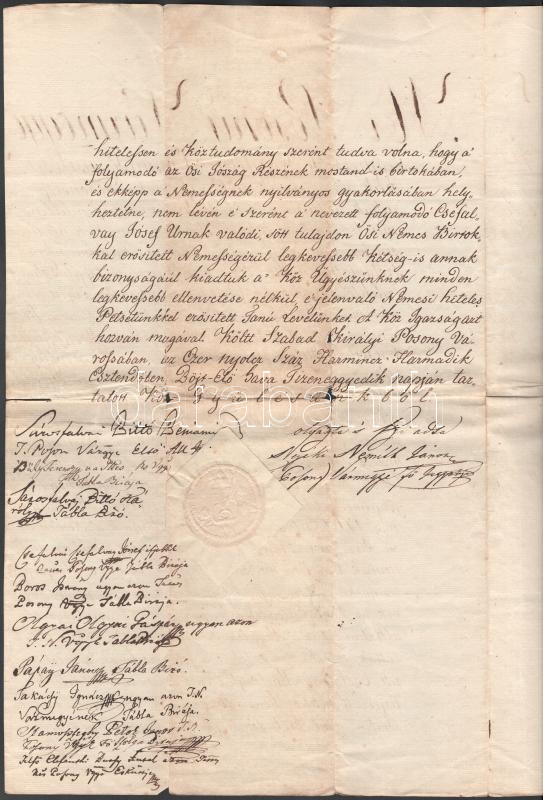 hitelessen és Köztudomány szerént tudva volna, hogy a'
folyamodó az Ősi Jószág Részének mostand is birtokában,
és ekképp a Nemességnek nyilványos gyakorlásában hely-
heztetne, nem lévén é szerént a nevezett folyamodó Csefal-
vay Jósef Urnak valódi, sőtt tulajdon Ősi Nemes Birtok-
kal erősitett Nemességérül legkevessebb Kétség is annak
bizonyságáúl kiadtuk a' Köz Ügyészünknek minden
legkevesebb ellenvetése nélkül, é jelenvaló Nemesi hiteles
Petsétünkkel erősitett Tanú Levelünket. A Köz Igazság azt
hozván magával. Költt Szabad Királyi Posony Vá-
rossában, az Ezer nyolcz Száz Harmincz Harmadik
Esztendőben, Böjt-Elő Hava Tizeneggyedik napján tar-
tatott Kis Gyűlésünkből
Sárosfalvi Bittó Beniamin
T. Posony Vármgye Első Al
Tábla Birája
Sárosfalvi Bittó Ká-
roly Tábla Biró.
Németh János
Posony Vármegye Fő
Csefalvi Csefalvay Jósef
Posony Vgye Tábla Birája
Boros ugyan azon
Posony Vgye Tábla Birája.
Olgyai Olgyai Gáspár ugyan azon
T. N. Vgye Tábla
Pápay János Tábla Biró.
Takátsy Ignácz ugyan azon T. N.
Vármegyének Tábla Birája.
Posony Vgye